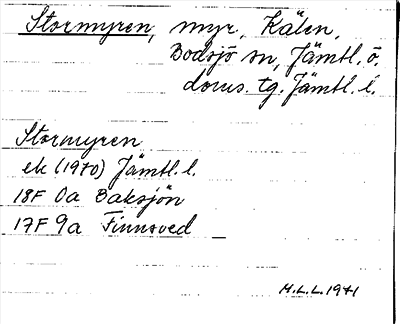 Stormyren, myr, Kälen,
Bodsjö sn, Jämtl. ö.
doms. tg. Jämtl. l.
Stormyren
ek (1970) Jämtl. l.
18F 0a Baksjön
17F 9a Finnsved
H.L.L. 1971